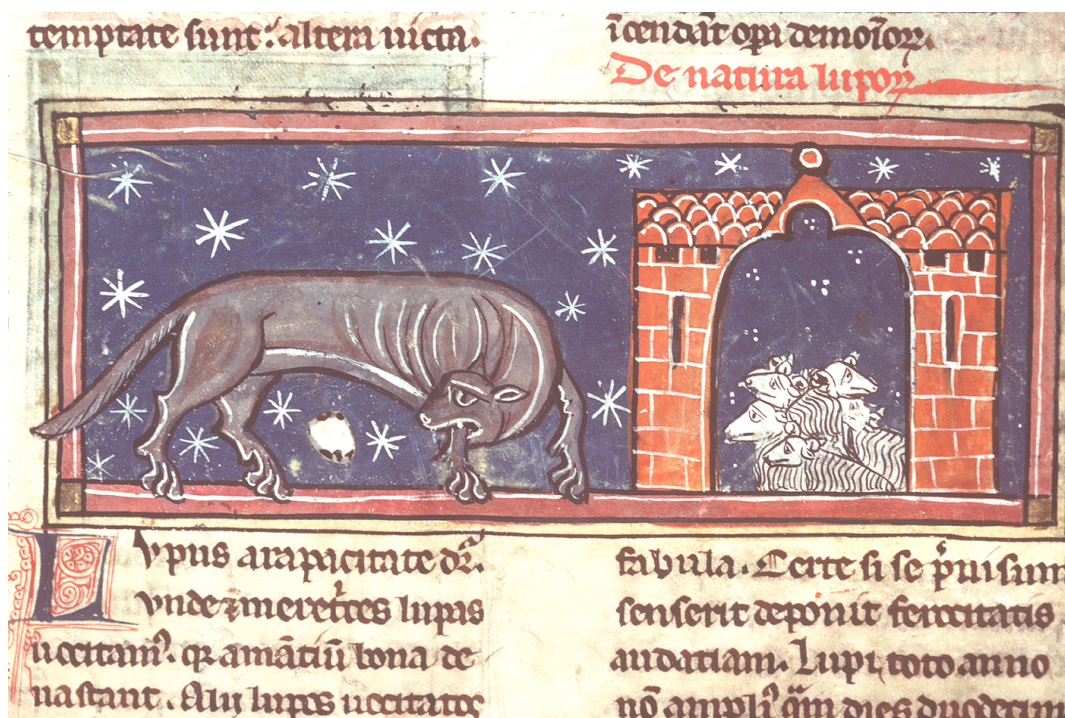 temptate sunt: altera uicta.
Vpus a rapacitate dr̃.
vnde ⁊ meretͥces lupas
uocitamꝰ. qꝛ amãtiũ bona de
uastant. Alij lupos uocitatos
ĩcendãt opa demoĩoꝝ.
De natura lupoꝝ
fabula. Certe si se p̃uisum
senserit deponit ferocitatis
audatiam. Lupi toto anno
nõ ampliꝰ q̃m dies duodecim